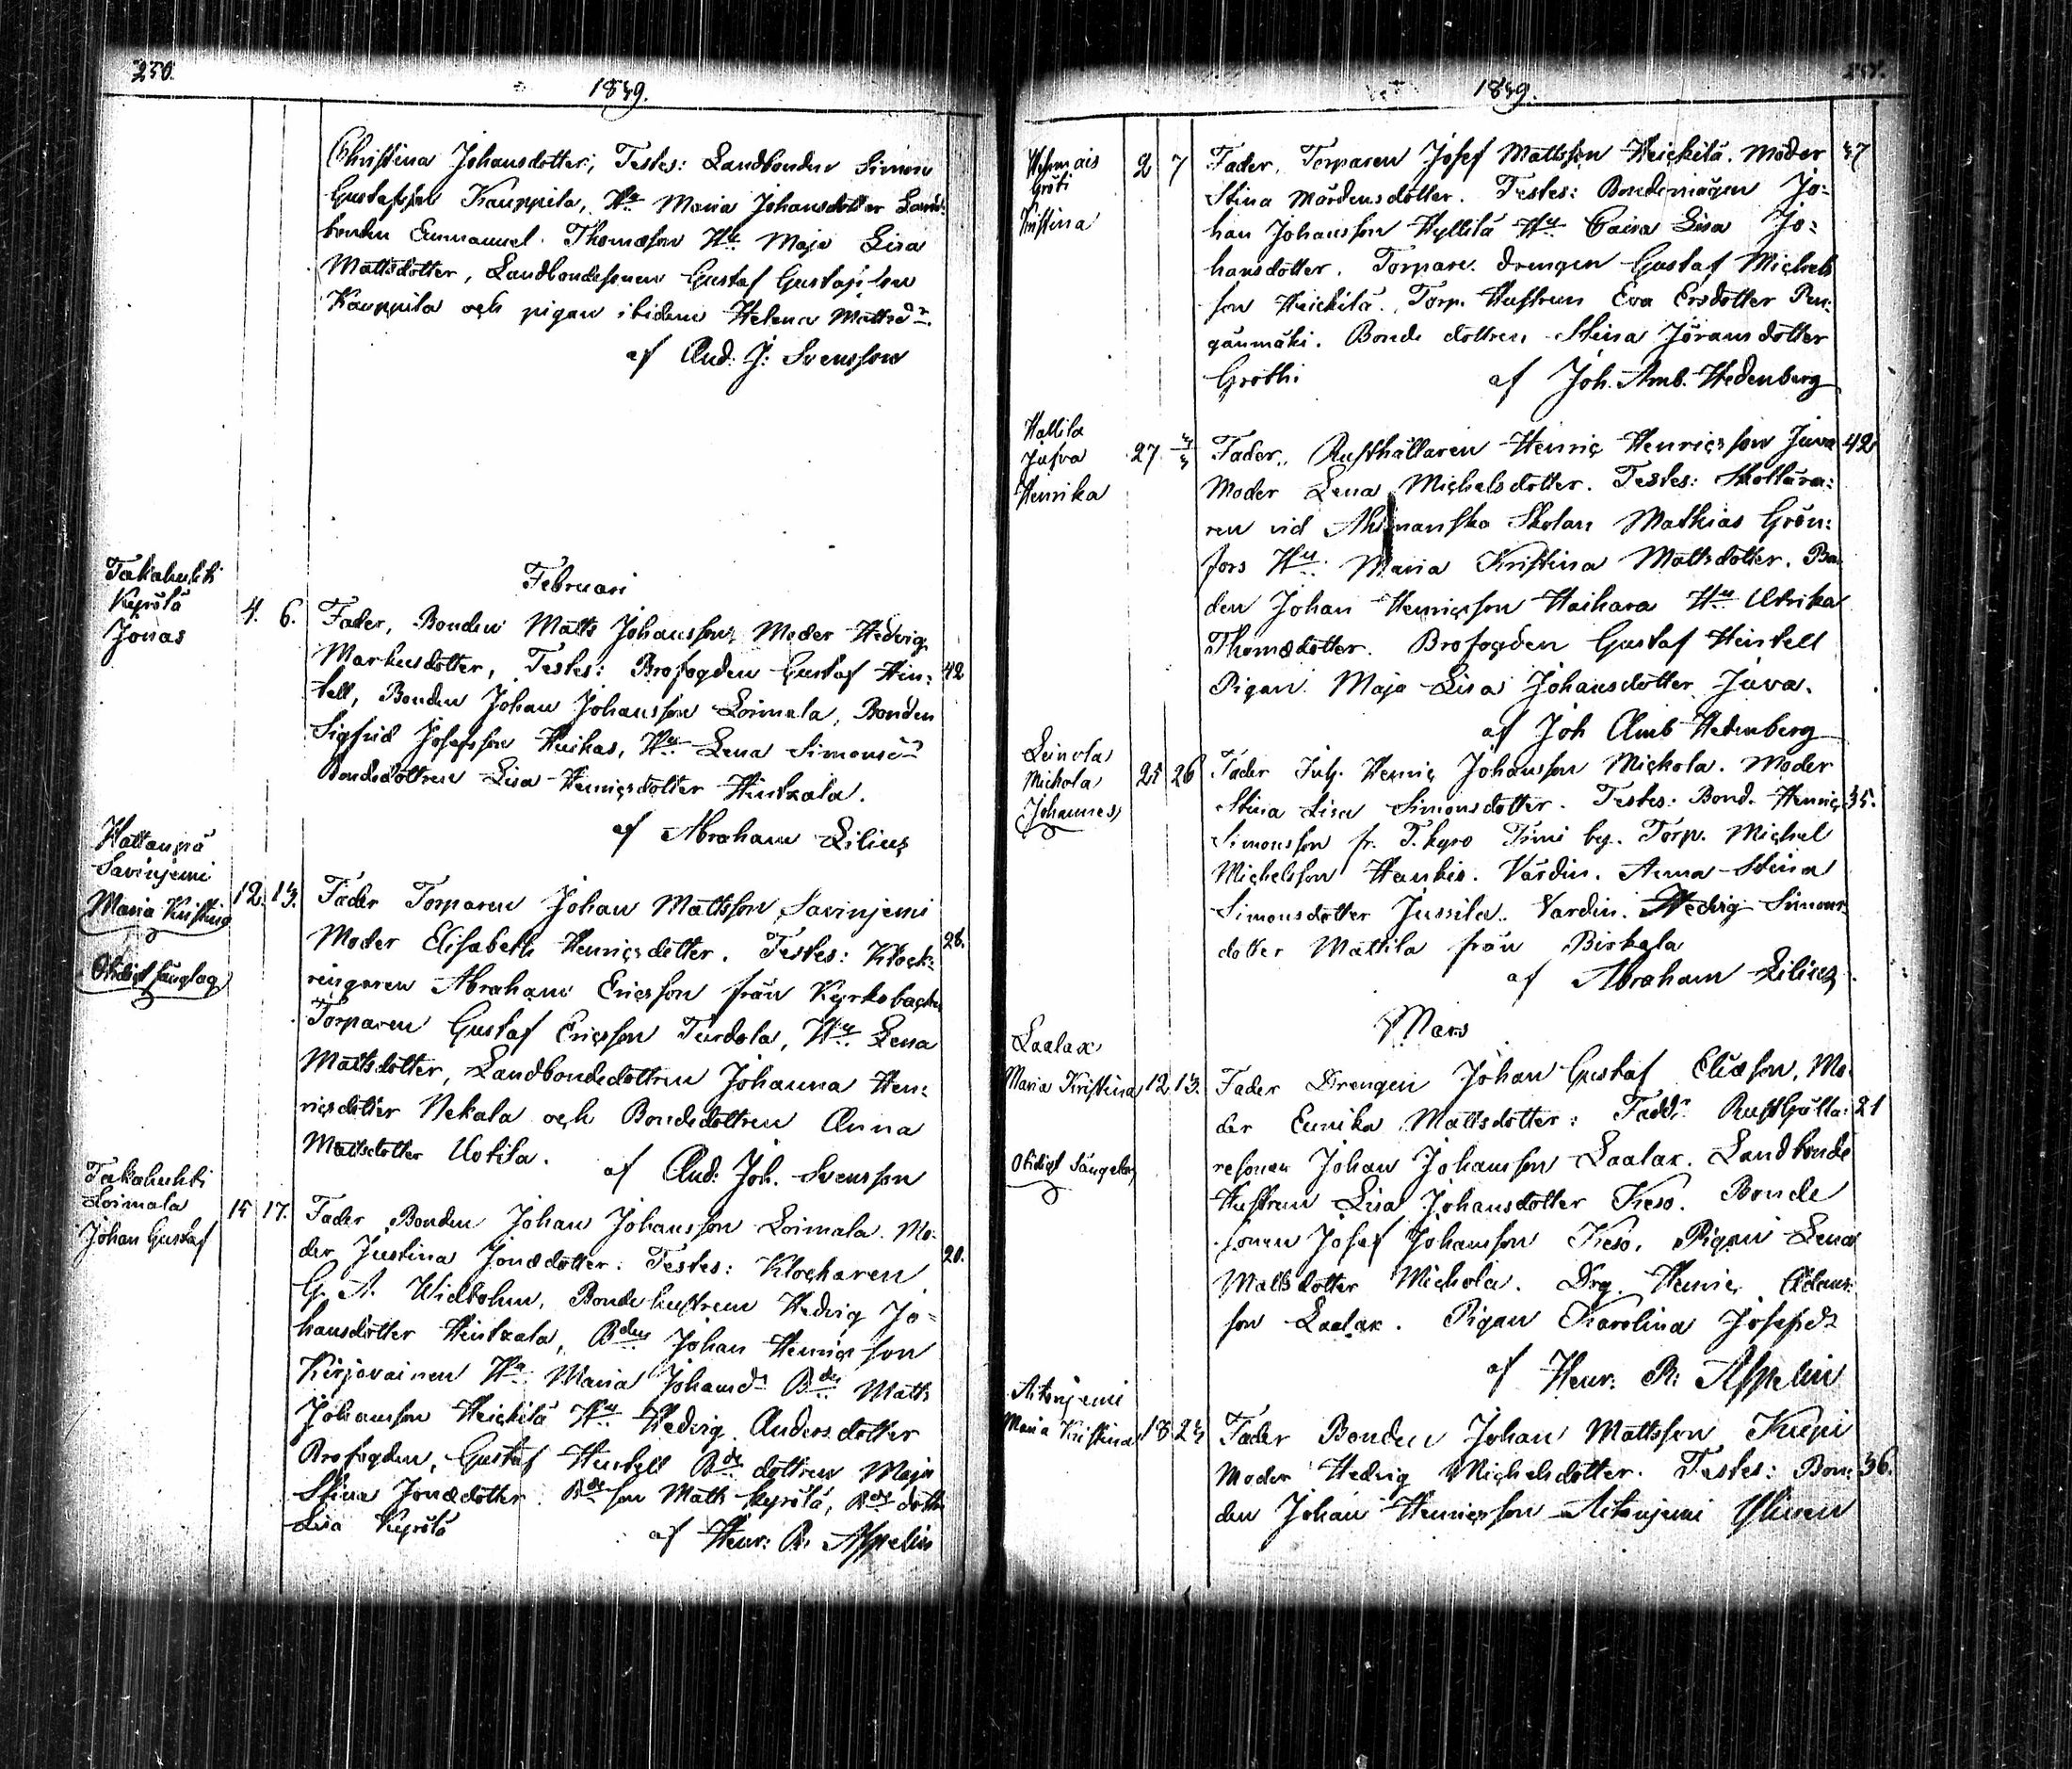 250.
1849.
Christina Johansdotter, Testes: Landbonden Simon
Gustafsson Kauppila, Hu Maria Johansdotter Land-
bonden Emmanuel Thomasson Hu Maja Lisa
Mattsdotter, Landbondesonen Gustaf Gustafsson
Kauppila och pigan ibidem Helena Mattsdr.
af And. J: Svensson
Februari
Takahuhti
Kyrölä
Jonas
4. 6. Fader, Bonden Matts Johansson, Moder Hedvig
Markusdotter, Testes: Brofogden Gustaf Hin- 42
tell, Bonden Johan Johansson Loimala, Bonden
Sigfrid Josefsson Huikas, Hu Lena Simonsdr
Bondedottren Lisa Henricsdotter Hintzala.
af Abraham Lilius
Hattanpä
Savinjemi
Maria Kristina
Oächt sänglag
12. 13. Fader Torparen Johan Mattsson Savinjemi
Moder Elisabeth Henricsdotter. Testes: Klock- 28.
ringaren Abraham Ericsson från Kyrkobacken
Torparen Gustaf Ericsson Turdola, Hu Lena
Mattsdotter, Landbondedottren Johanna Hen-
ricsdotter Nekala och Bondedottren Anna
Mattsdotter Uotila. af And: Joh. Svensson
Takahuhti
Loimala
Johan Gustaf
15 17. Fader Bonden Johan Johansson Loimala. Mo-
der Justina Jonædotter. Testes: Klockaren 20.
G. A. Widbohm, Bondehustrun Hedvig Jo-
hansdotter Hintzala, Bden Johan Henricsson
Kirjavainen Hu Maria Johansdr Bden Matts
Johansson Heickilä Hu Hedvig Andersdotter
Brofogden, Gustaf Hentell Bde dottren Maja
Stina Jonædotter. Bde son Matts Kyrölä, Bde dottr
Lisa Kyrölä af Henr: R: Appelin
1849.
Gröti
Kristina
2 7 Fader, Torparen Josef Mattsson Heickilä. Moder 37
Stina Mårdensdotter. Testes: Bondemågen Jo-
han Johansson Hyllilä Hu Caisa Lisa Jo-
hansdotter. Torpare drengen Gustaf Michels
son Heickilä. Torp. Hustrun Eva Ersdotter Pen-
gänmäki. Bonde dottren Stina Jöransdotter
Gröthi af Joh. Amb. Hedenberg
Hallila
Jufva
Henrika
27. 4/3 Fader, Rusthållaren Henric Henricsson Juva 42
Moder Lena Michelsdotter. Testes: Skollära-
ren vid Ahlmanska Skolan Mathias Grön-
fors Hu: Maria Kristina Mattsdotter. Bon
den Johan Henricsson Haihara Hu Ulrika
Thomædotter. Brofogden Gustaf Hintell
Pigan Maja Lisa Johansdotter Juva.
af Joh Amb Hedenberg
Leinola
Mickola
Johannes
25 26 Fader Inh. Henric Johansson Mickola. Moder
Stina Lisa Simonsdotter. Testes: Bond. Henric 35.
Simonsson fr. T.kyro Timi by. Torp. Michel
Michelsson Hankis. Värdin. Anna Stina
Simonsdotter Jussila. Värdin. Hedvig Simons
dotter Mattila från Birkala
af Abraham Lilius
Mars
Laalax
Maria Kristina
Oächt Sängelag
12 13. Fader Drengen Johan Gustaf Eliæson, Mo-
der Eunika Mattsdotter: Faddr Rusthålla- 21
resonen Johan Johansson Laalax. Landbonde
Hustrun Lisa Johansdotter Keso. Bonde
sonen Josef Johansson Keso. Pigan Lena
Mattsdotter Mickola. Drg. Henric Adams-
son Laalax. Pigan Karolina Josefsdr
af Henr: R: Appelin
Aitonjemi
Maria Kristina
18 23 Fader Bonden Johan Mattsson Knepi
Moder Hedvig Michelsdotter. Testes: Bon- 36.
den Johan Henricsson Aitonjemi Ylinen